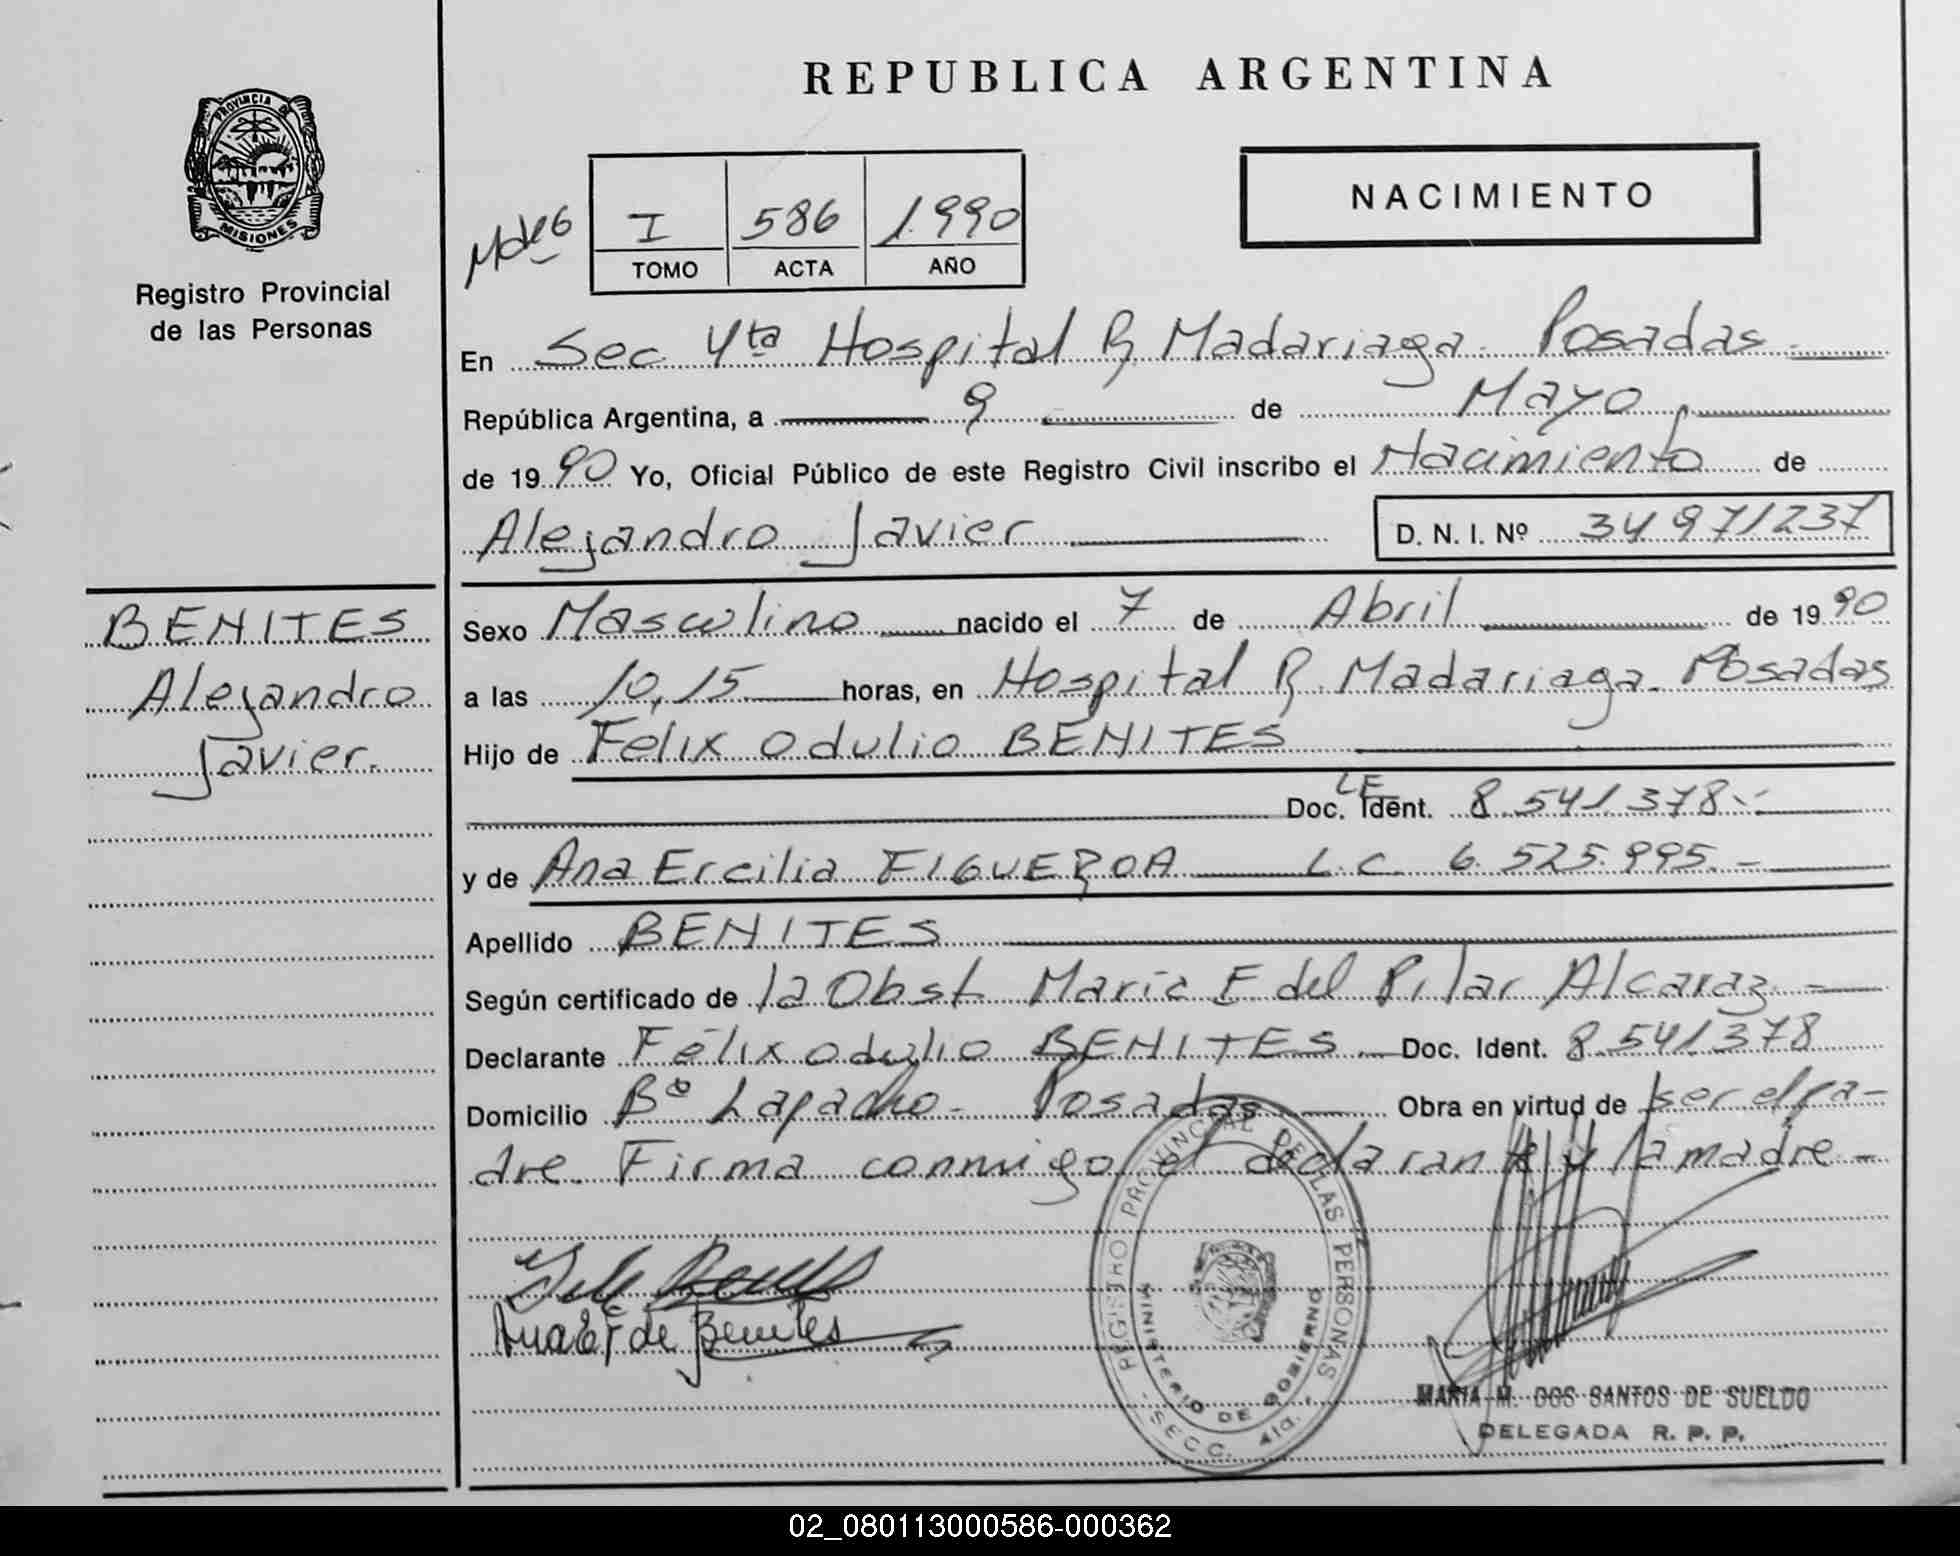 REPUBLICA ARGENTINA
PROVINCIA DE
MISIONES
Registro Provincial
de las Personas
I 586 1.990
TOMO ACTA AÑO
NACIMIENTO
En Sec 4ta Hospital R. Madariaga. Posadas.
República Argentina, a 9 de Mayo
de 1990 Yo, Oficial Público de este Registro Civil inscribo el Nacimiento de
Alejandro Javier D. N. I. Nº 34971237
BENITES
Alejandro
Javier.
Sexo Masculino nacido el 7 de Abril de 1990
a las 10,15 horas, en Hospital R. Madariaga. Posadas
Hijo de Felix Odulio BENITES
Doc. Ident. LE 8.541.378.-
y de Ana Ercilia FIGUEROA L.C. 6.525.995.-
Apellido BENITES
Según certificado de la Obst. Maria E del Pilar Alcaraz -
Declarante Félix Odulio BENITES Doc. Ident. 8.541.378
Domicilio Bº Lapacho - Posadas Obra en virtud de ser el pa-
dre. Firma conmigo el declarante y la madre -
Ana E F de Benites
REGISTRO PROVINCIAL DE LAS PERSONAS
MINISTERIO DE GOBIERNO
- SECC. 4ta. -
MARIA M. DOS SANTOS DE SUELDO
DELEGADA R. P. P.
02_080113000586-000362